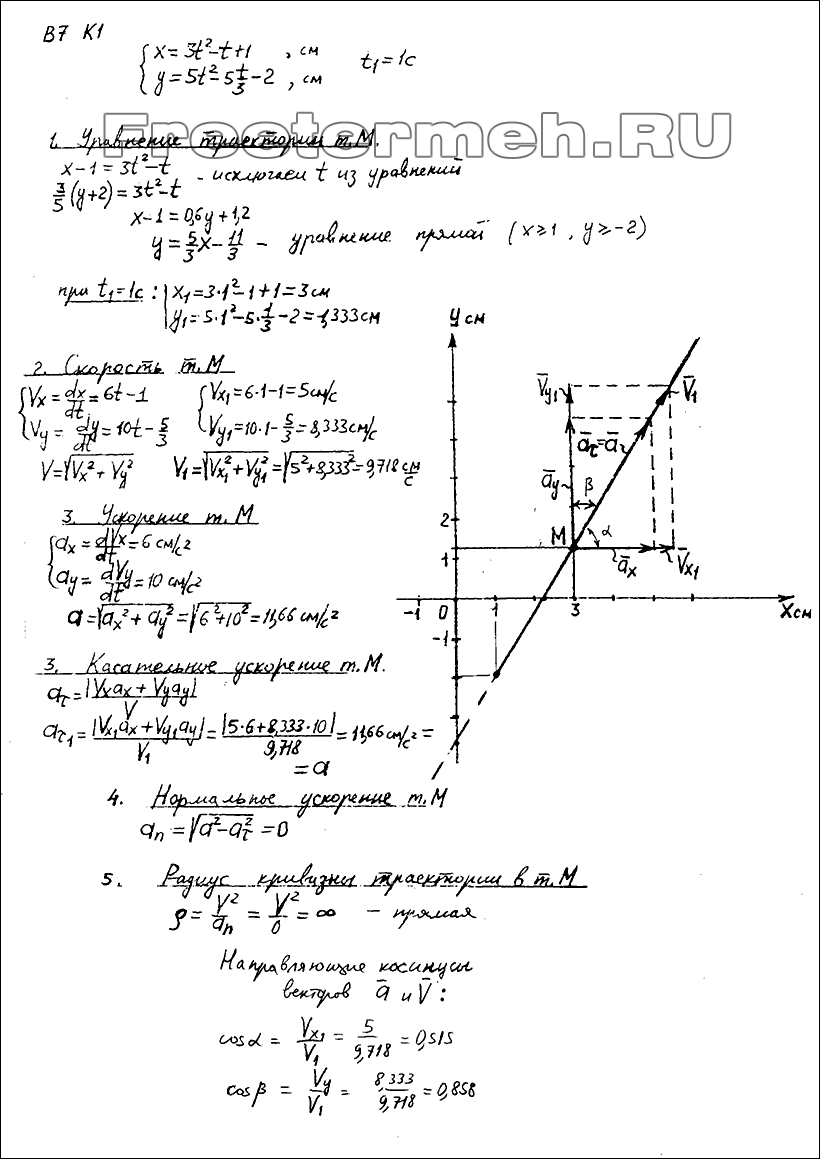 В7 К1
x = 3t² – t + 1 , см
y = 5t² – 5 t/3 – 2 , см
t₁ = 1с
Frostermeh.RU
1. Уравнение траектории т.М.
x – 1 = 3t² – t
3/5 (y+2) = 3t² – t
– исключаем t из уравнений
x – 1 = 0,6y + 1,2
y = 5/3 x – 11/3 – уравнение прямой (x ≥ 1 , y ≥ –2)
при t₁ = 1с :
x₁ = 3·1² – 1 + 1 = 3 см
y₁ = 5·1² – 5·1/3 – 2 = 1,333 см
2. Скорость т.М
Vx = dx/dt = 6t – 1
Vy = dy/dt = 10t – 5/3
Vx₁ = 6·1 – 1 = 5 см/с
Vy₁ = 10·1 – 5/3 = 8,333 см/с
V = √(Vx² + Vy²)
V₁ = √(Vx₁² + Vy₁²) = √(5² + 8,333²) = 9,718 см/с
3. Ускорение т.М
ax = dVx/dt = 6 см/с²
ay = dVy/dt = 10 см/с²
a = √(ax² + ay²) = √(6² + 10²) = 11,66 см/с²
3. Касательное ускорение т.М.
aτ = |Vx ax + Vy ay| / V
aτ₁ = |Vx₁ ax + Vy₁ ay| / V₁ = |5·6 + 8,333·10| / 9,718 = 11,66 см/с² =
= a
4. Нормальное ускорение т.М
an = √(a² – aτ²) = 0
5. Радиус кривизны траектории в т.М
ρ = V²/an = V²/0 = ∞ – прямая
Направляющие косинусы
векторов a̅ и V̅ :
cos α = Vx₁/V₁ = 5/9,718 = 0,515
cos β = Vy/V₁ = 8,333/9,718 = 0,858
У см
V̅y₁
V̅₁
a̅τ = a̅
a̅y
β
2
М
α
1
a̅x
V̅x₁
-1
0
1
3
X см
-1